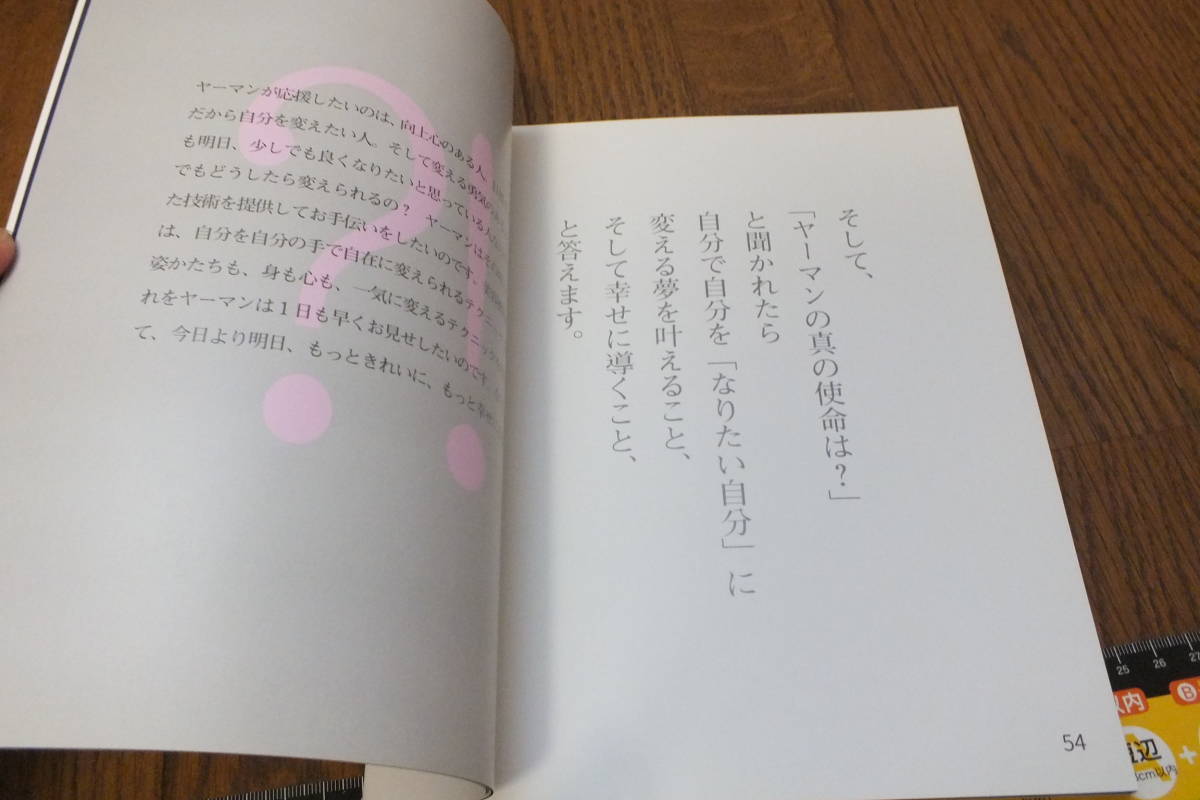 ヤーマンが応援したいのは、向上心のある人
だから自分を変えたい人。そして変える勇気の
も明日、少しでも良くなりたいと思っている
でもどうしたら変えられるの？ ヤーマンは
た技術を提供してお手伝いをしたいのです。
は、自分を自分の手で自在に変えられるテクニッ
姿かたちも、身も心も、一気に変えるテクニック
れをヤーマンは1日も早くお見せしたいのです。
て、今日より明日、もっときれいに、もっと幸せ
?!
そして、
「ヤーマンの真の使命は？」
と聞かれたら
自分で自分を「なりたい自分」に
変える夢を叶えること、
そして幸せに導くこと、
と答えます。
54
25 26 27
以内 B
短辺 +
cm以内